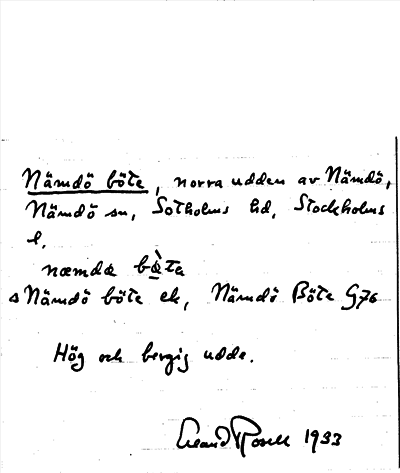 Nämdö böte, norra udden av Nämdö,
Nämdö sn, Sotholms hd, Stockholms
l.
næmdα
Nämdö böte ek, Nämdö Böte G76
Hög och bergig udde.
Rosell 1933